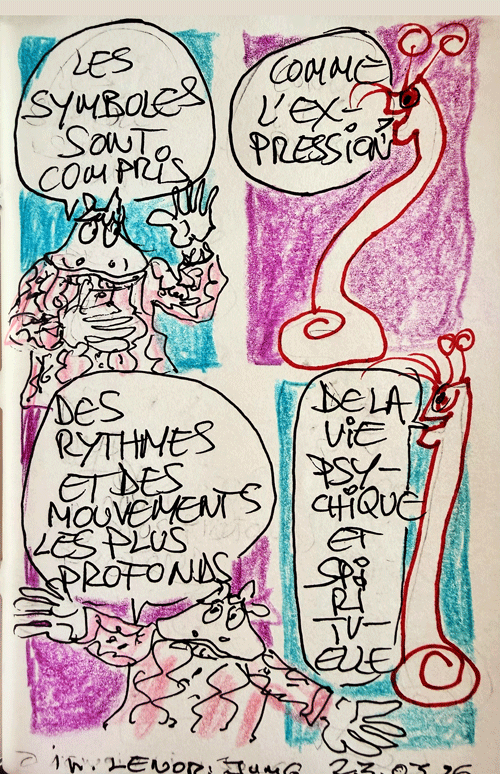 LES
SYMBOLES
SONT
COMPRIS
COMME
L'EX-
PRESSION
DES
RYTHMES
ET DES
MOUVEMENTS
LES PLUS
PROFONDS
DE LA
VIE
PSY-
CHIQUE
ET
SPI
RI
TU-
ELLE
in. LENOR, JUNG